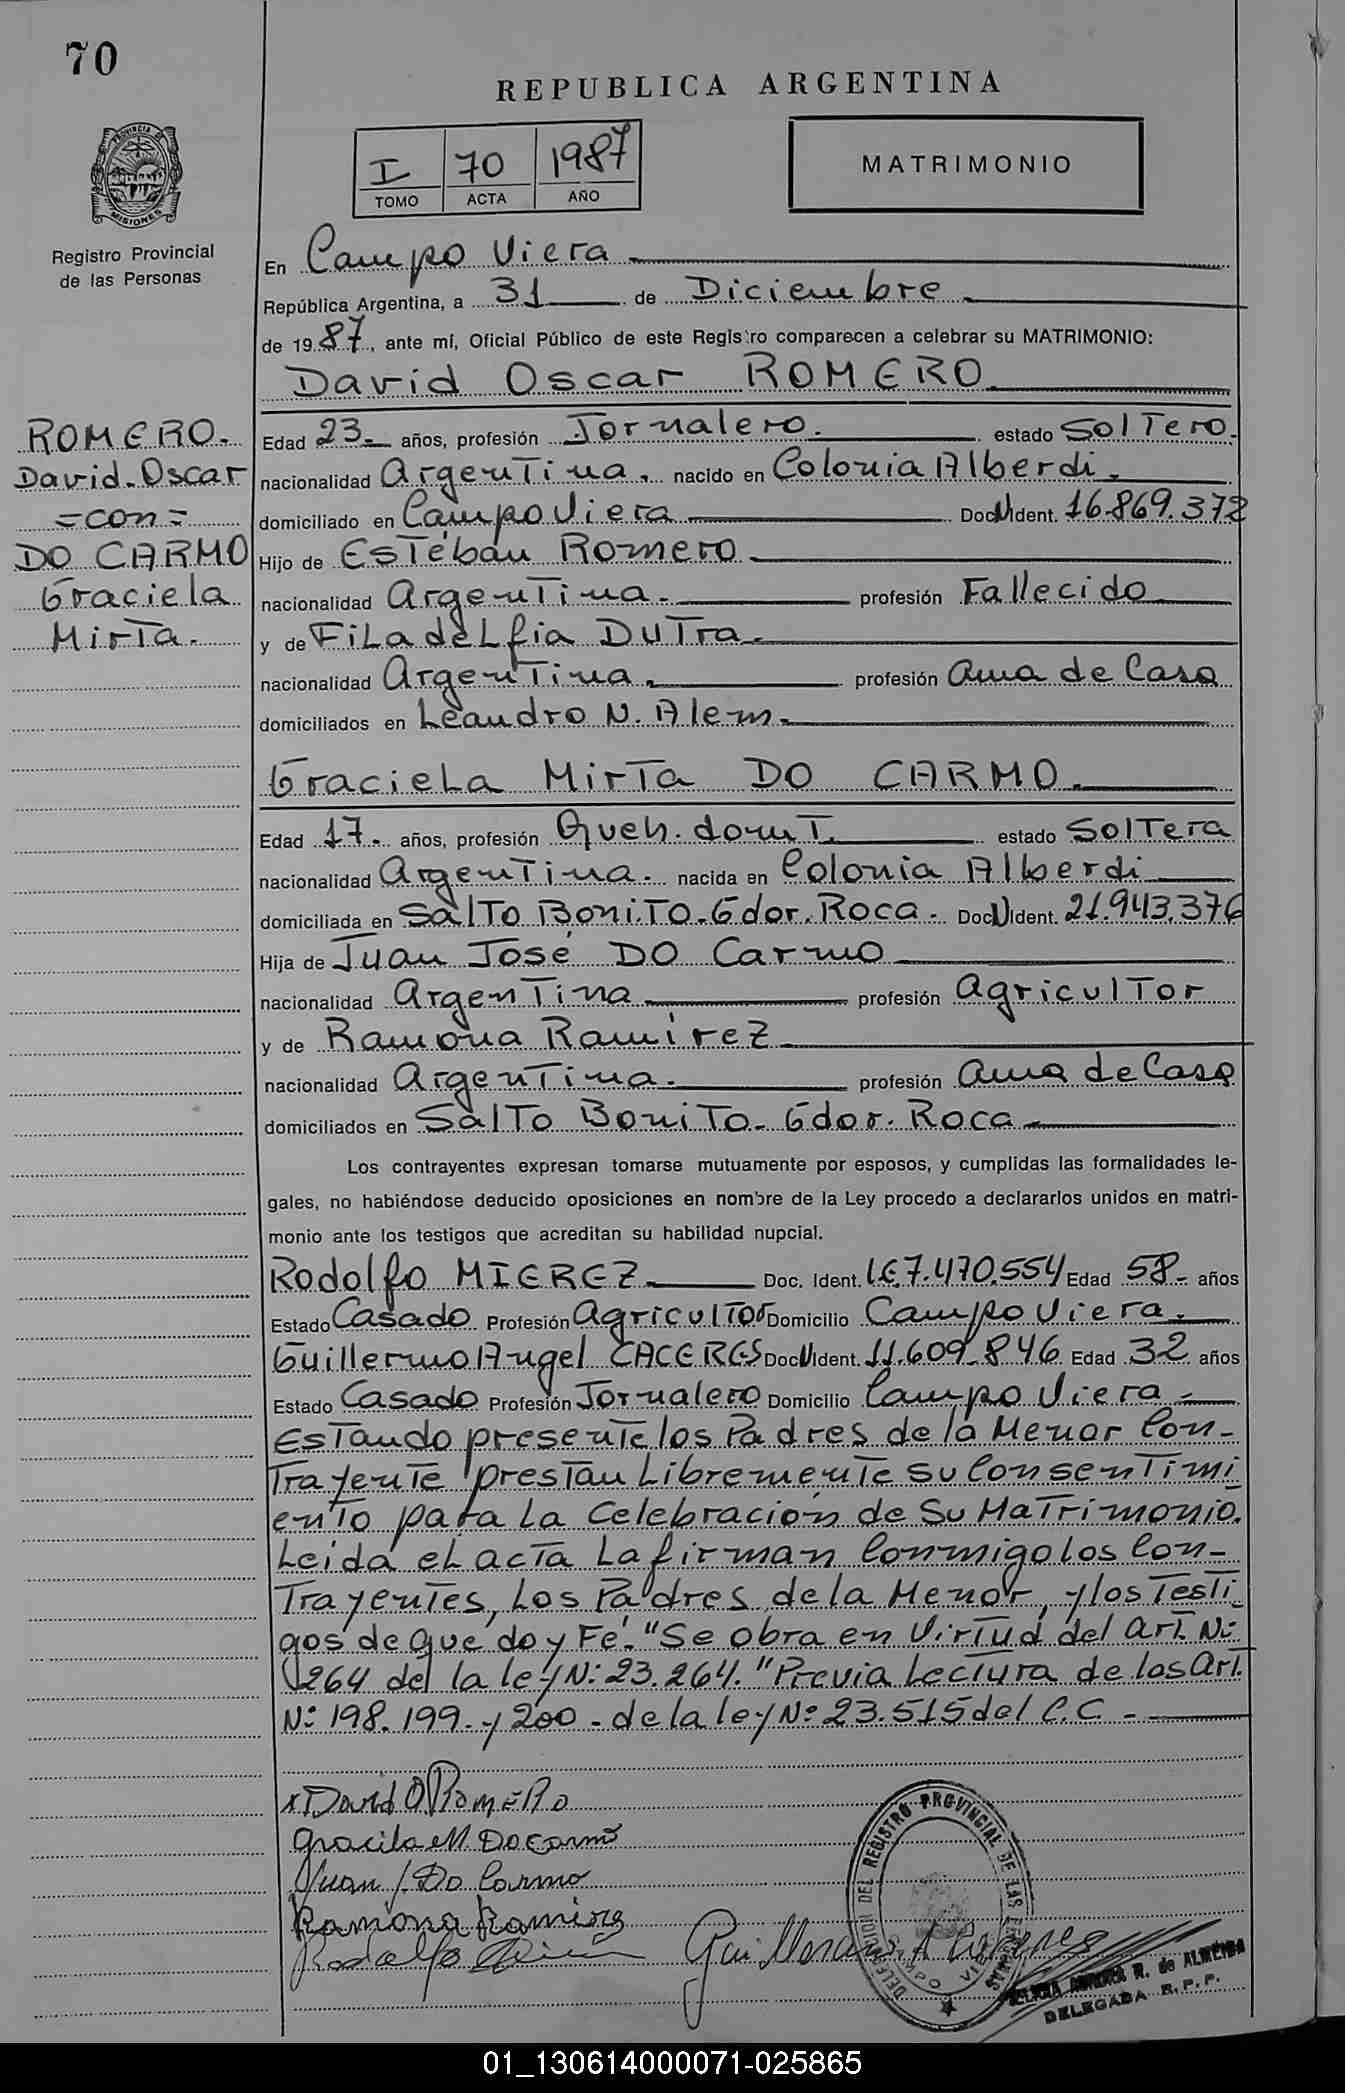 70
REPUBLICA ARGENTINA
I 70 1987
TOMO ACTA AÑO
MATRIMONIO
PROVINCIA DE
MISIONES
Registro Provincial
de las Personas
En Campo Viera
República Argentina, a 31 de Diciembre
de 1987, ante mí, Oficial Público de este Registro comparecen a celebrar su MATRIMONIO:
David Oscar ROMERO
ROMERO.
David Oscar
=con=
DO CARMO
Graciela
Mirta.
Edad 23 años, profesión Jornalero. estado Soltero.
nacionalidad Argentina. nacido en Colonia Alberdi.
domiciliado en Campo Viera Doc N Ident. 16.869.372
Hijo de Estéban Romero
nacionalidad Argentina. profesión Fallecido
y de Filadelfia Dutra.
nacionalidad Argentina. profesión Ama de Casa
domiciliados en Leandro N. Alem.
Graciela Mirta DO CARMO.
Edad 17. años, profesión Queh. domt. estado Soltera
nacionalidad Argentina. nacida en Colonia Alberdi
domiciliada en Salto Bonito-Gdor. Roca. Doc N Ident. 21.943.376
Hija de Juan José DO Carmo
nacionalidad Argentina profesión Agricultor
y de Ramona Ramirez
nacionalidad Argentina. profesión Ama de Casa
domiciliados en Salto Bonito- Gdor. Roca
Los contrayentes expresan tomarse mutuamente por esposos, y cumplidas las formalidades le-
gales, no habiéndose deducido oposiciones en nombre de la Ley procedo a declararlos unidos en matri-
monio ante los testigos que acreditan su habilidad nupcial.
Rodolfo MIEREZ Doc. Ident. LE 7.470.554 Edad 58 años
Estado Casado Profesión Agricultor Domicilio Campo Viera.
Guillermo Angel CACERES Doc N Ident. 11.609.846 Edad 32 años
Estado Casado Profesión Jornalero Domicilio Campo Viera
Estando presente los Padres de la Menor Con-
trayente prestan Libremente su Consentimi
ento para La Celebración de Su Matrimonio.
Leida el acta La firman Conmigo los Con-
trayentes, Los Padres de la Menor, y los Testi-
gos de que doy Fé. "Se obra en Virtud del art. N:
264 del la ley N: 23.264. "Previa Lectura de los art.
N: 198. 199. y 200 - de la ley Nº 23.515 del C.C.
x David O Romero
Gracila M. Do Carmo
Juan J. Do Carmo
Ramona Ramirez
Rodolfo
Guillermo A
DELEGACION DEL REGISTRO PROVINCIAL DE LAS PERSONAS
R. de ALMEIDA
DELEGADA R.P.P.
01_130614000071-025865